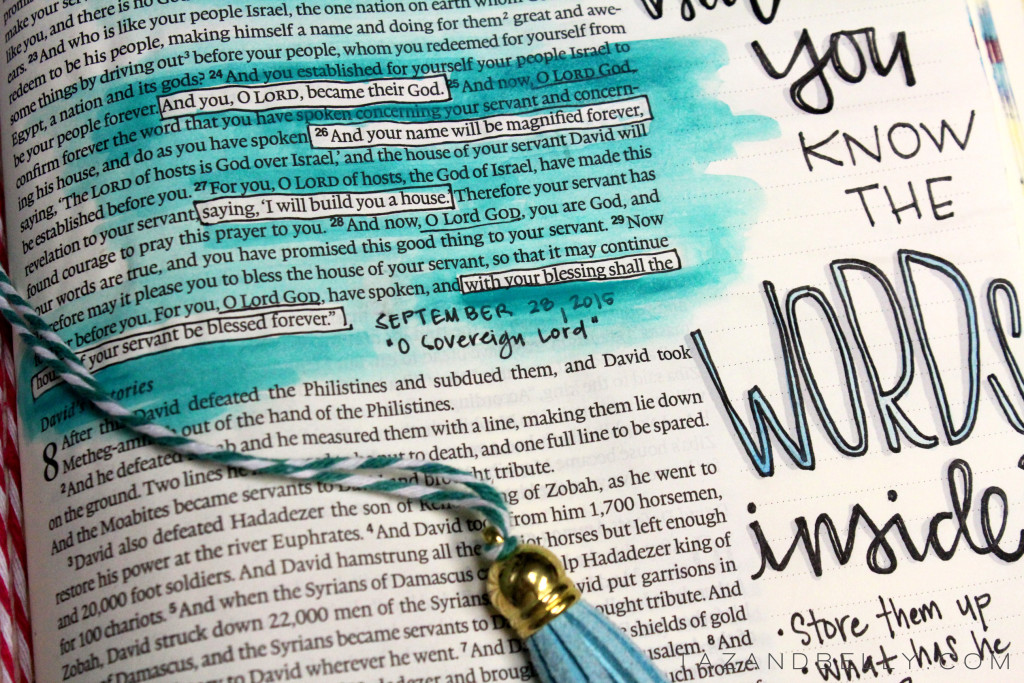 make your serv
like you, and there is no God
ears. 23 And who is like your people Israel, the one nation on earth whom God
redeem to be his people, making himself a name and doing for them2 great and awe-
some things by driving out3 before your people, whom you redeemed for yourself from
Egypt, a nation and its gods? 24 And you established for yourself your people Israel to
be your people forever. And you, O LORD, became their God. 25 And now, O LORD God,
confirm forever the word that you have spoken concerning your servant and concern-
ing his house, and do as you have spoken. 26 And your name will be magnified forever,
saying, ‘The LORD of hosts is God over Israel,’ and the house of your servant David will
be established before you. 27 For you, O LORD of hosts, the God of Israel, have made this
revelation to your servant, saying, ‘I will build you a house.’ Therefore your servant has
found courage to pray this prayer to you. 28 And now, O Lord GOD, you are God, and
our words are true, and you have promised this good thing to your servant. 29 Now
refore may it please you to bless the house of your servant, so that it may continue
er before you. For you, O Lord GOD, have spoken, and with your blessing shall the
hou f your servant be blessed forever.”
SEPTEMBER 28, 2015
"O Sovereign Lord"
David's tories
8 After this David defeated the Philistines and subdued them, and David took
Metheg-amm out of the hand of the Philistines.
2 And he defeated ab and he measured them with a line, making them lie down
on the ground. Two lines he to be put to death, and one full line to be spared.
And the Moabites became servants to Da and brought tribute.
3 David also defeated Hadadezer the son of Reh ng of Zobah, as he went to
restore his power at the river Euphrates. 4 And David took from him 1,700 horsemen,
and 20,000 foot soldiers. And David hamstrung all the iot horses but left enough
for 100 chariots. 5 And when the Syrians of Damascus c lp Hadadezer king of
Zobah, David struck down 22,000 men of the Syrians vid put garrisons in
of Damascus, and the Syrians became servants to D ought tribute. And
to David wherever he went. 7 And D shields of gold
dadezer and broug usalem. 8 And
uch bronze
you
KNOW
THE
WORDS
inside
• Store them up
• what has he
TAZANDBELLY.COM